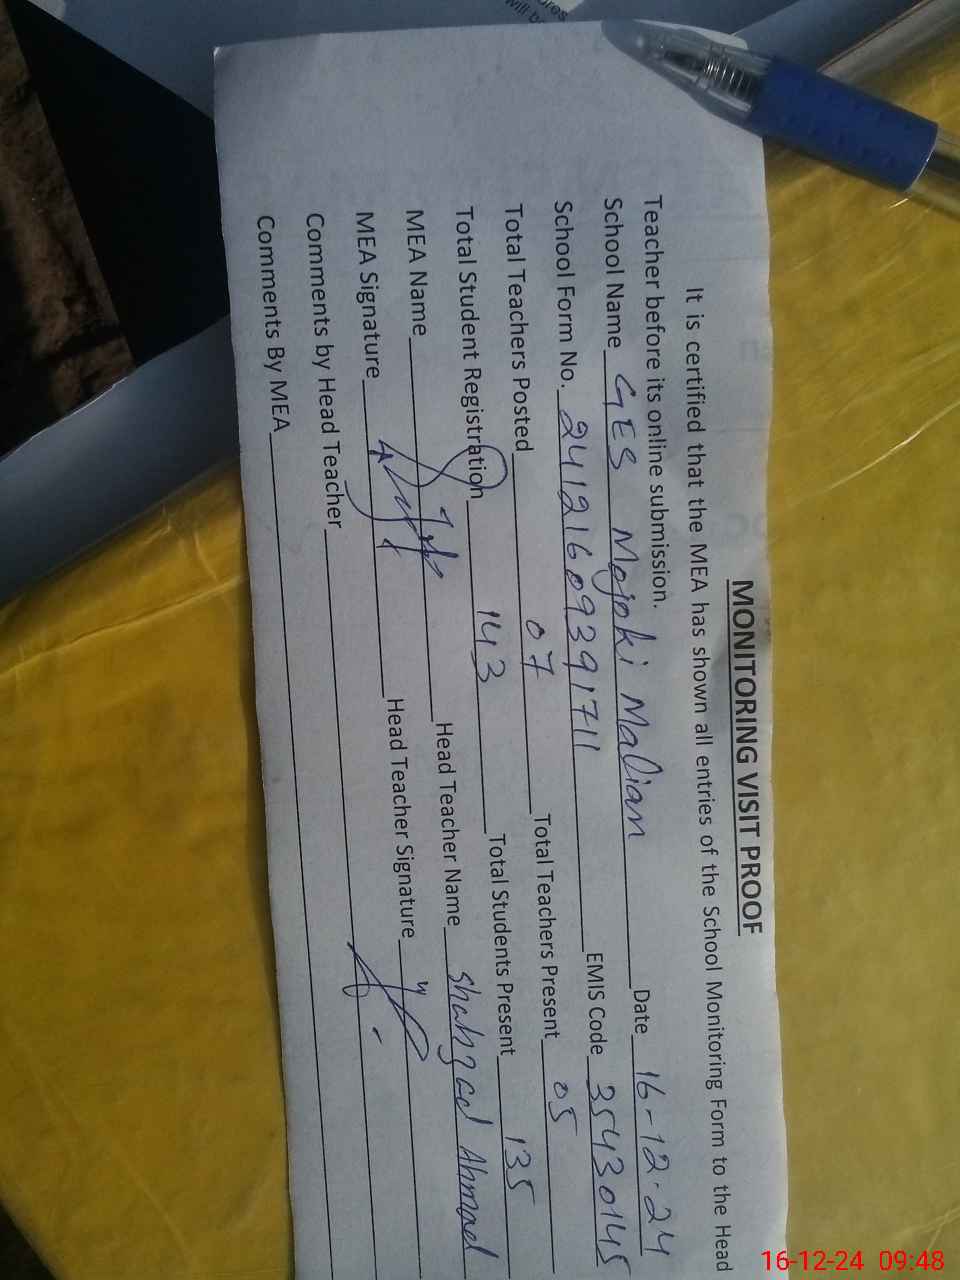 MONITORING VISIT PROOF
It is certified that the MEA has shown all entries of the School Monitoring Form to the Head
Teacher before its online submission.
School Name GES Mojoki Malian Date 16-12-24
School Form No. 24121609391711 EMIS Code 35430145
Total Teachers Posted 07 Total Teachers Present 05
Total Student Registration 143 Total Students Present 135
MEA Name Head Teacher Name Shahzad Ahmad
MEA Signature Head Teacher Signature
Comments by Head Teacher
Comments By MEA
16-12-24 09:48